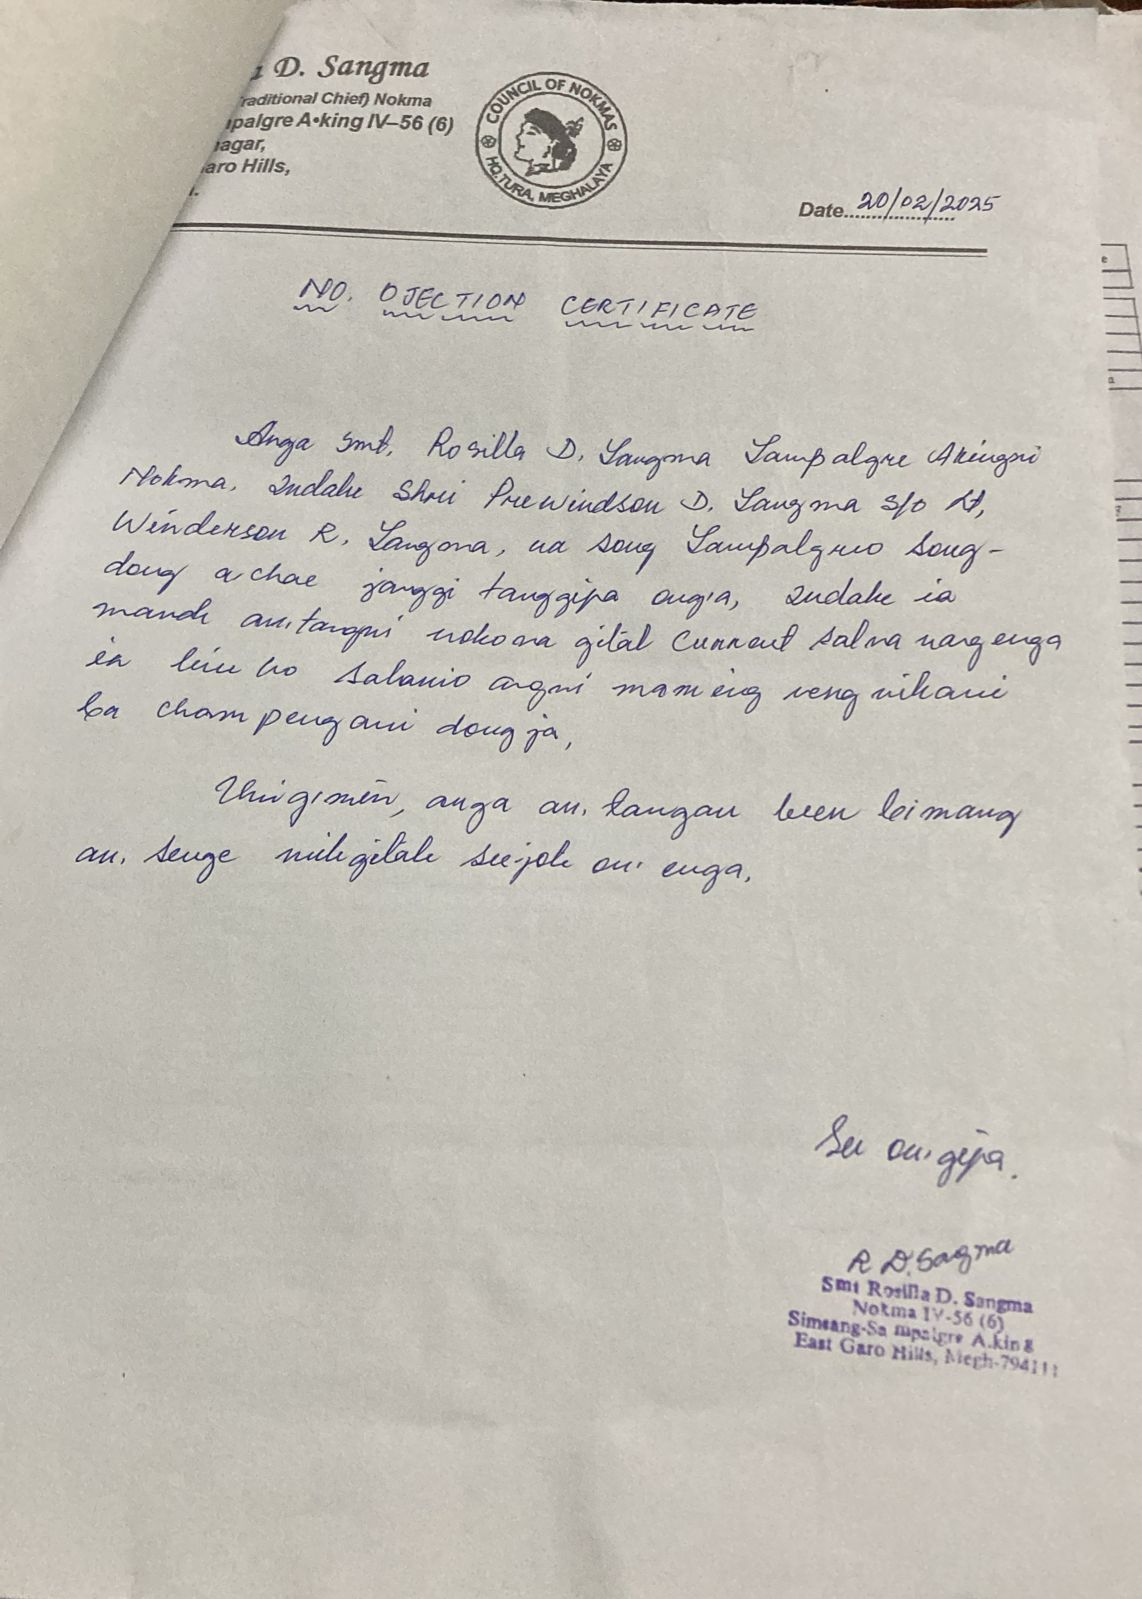 D. Sangma
raditional Chief) Nokma
mpalgre A•king IV–56 (6)
nagar,
aro Hills,
COUNCIL OF NOKMAS
HQ.TURA, MEGHALAYA
Date 20/02/2025
NO. OJECTION CERTIFICATE
Anga Smt. Rosilla D. Sangma Sampalgre Akingni
Nokma. Indake Shri Prewindson D. Sangma S/o Lt,
Winderson R. Sangma, ua song Sampalgreo song-
dong a chae janggi tanggipa ong'a, Indake ia
mande an.tangni nokona gital Current salna nangenga
ia line ko salanio angni mameing
ba champengani dongja,
Unigimin, anga an.tangan been bimang
an.senge
Sei on.gipa.
R D. Sagma
Smt Rosilla D. Sangma
Nokma IV-56 (6)
Simsang-Sa mpalgre A.king
East Garo Hills, Megh-794111